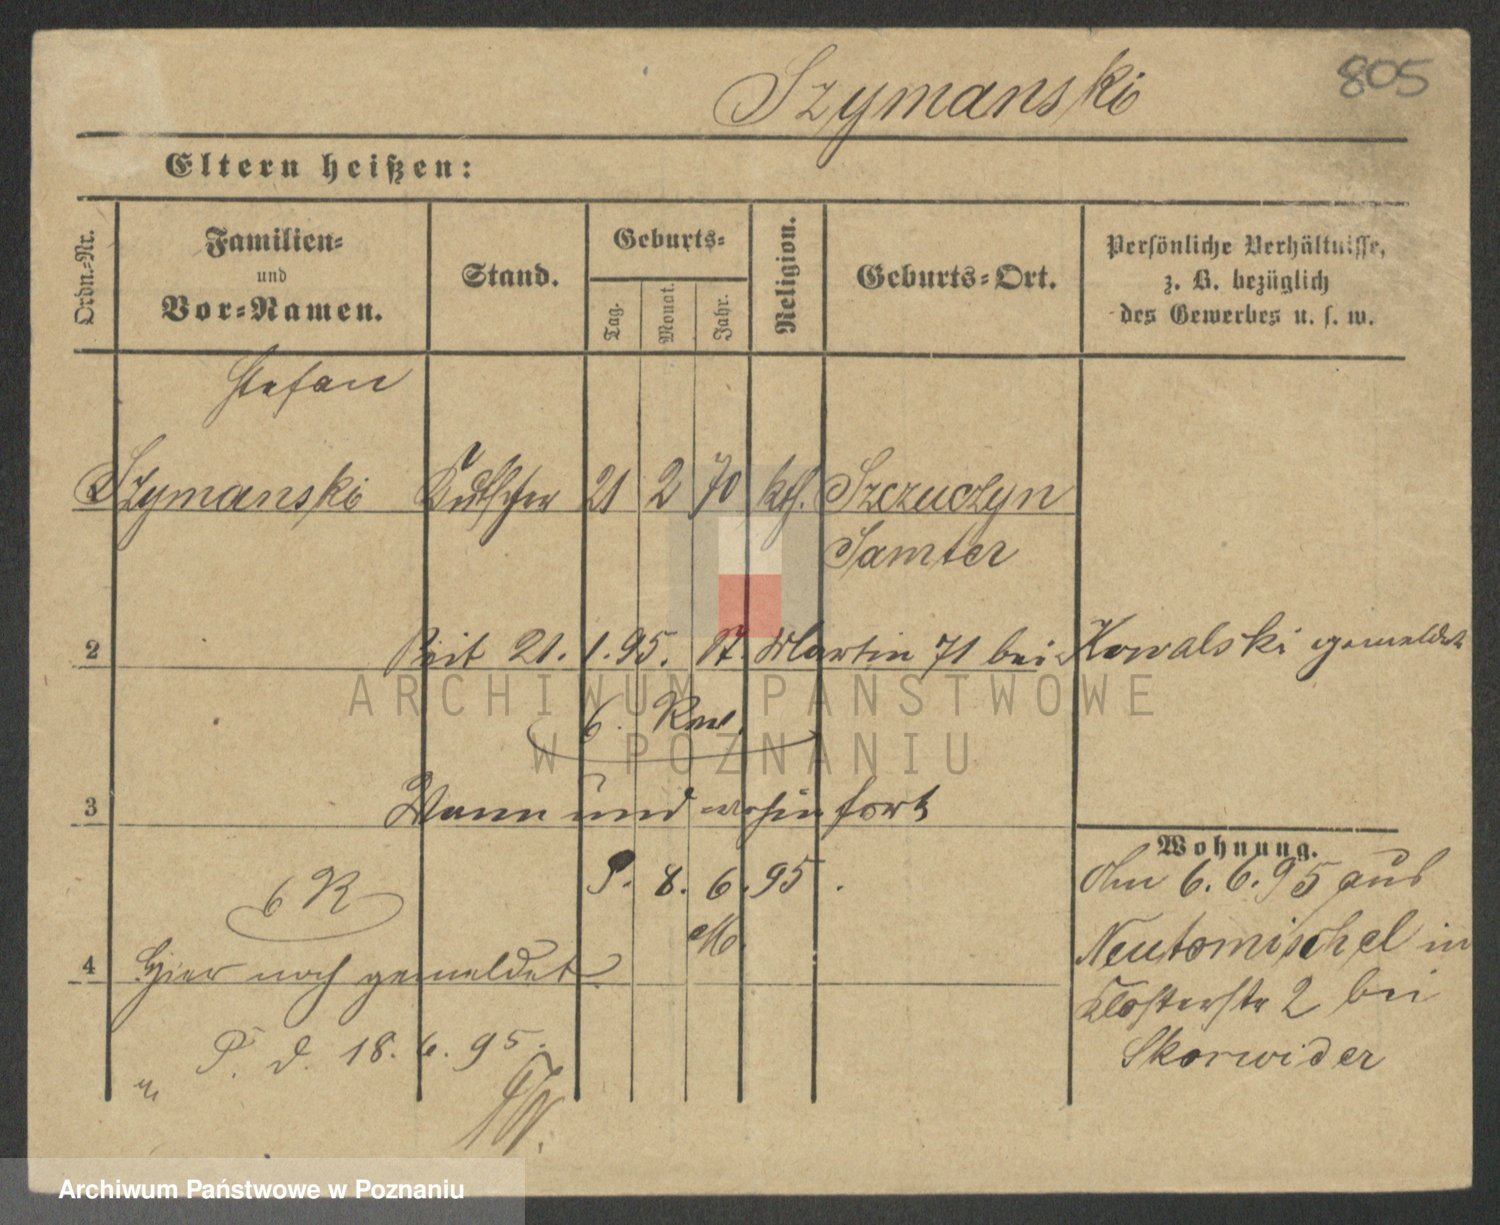 Szymanski
805
Eltern heißen:
Ordn.-Nr.
Familien-
und
Vor-Namen.
Stand.
Geburts-
Tag.
Monat.
Jahr.
Religion.
Geburts-Ort.
Persönliche Verhältnisse,
z. B. bezüglich
des Gewerbes u. s. w.
Stefan
Szymanski Kutscher 21 2 70 kth. Szczuczyn
Samter
2 Seit 21. 1. 95. St. Martin 71 bei Kowalski gemeldet
6. Rev.
3 Wann und wohin fort
Wohnung.
P. 8. 6. 95.
M.
Am 6. 6. 95 aus
Neutomischel in
Klosterstr 2 bei
Skorwider
6 R
4 Hier noch gemeldet
P. d. 18. 6. 95.
ARCHIWUM PAŃSTWOWE
W POZNANIU
Archiwum Państwowe w Poznaniu